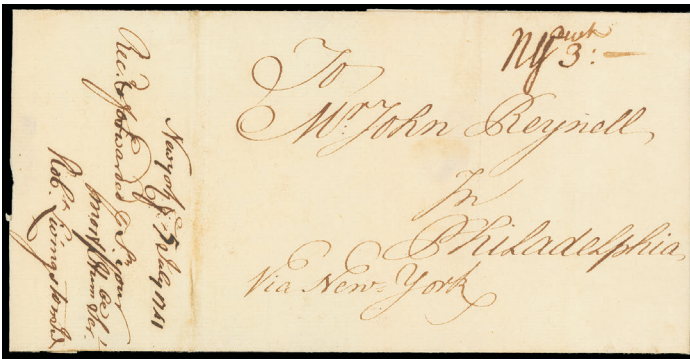 NY 3:
To
Mr. John Reynell
In
Philadelphia
Via New-York
New york July 1741
Rec.d & forwarded your
most Hum Ser.
Rob.t Livingston